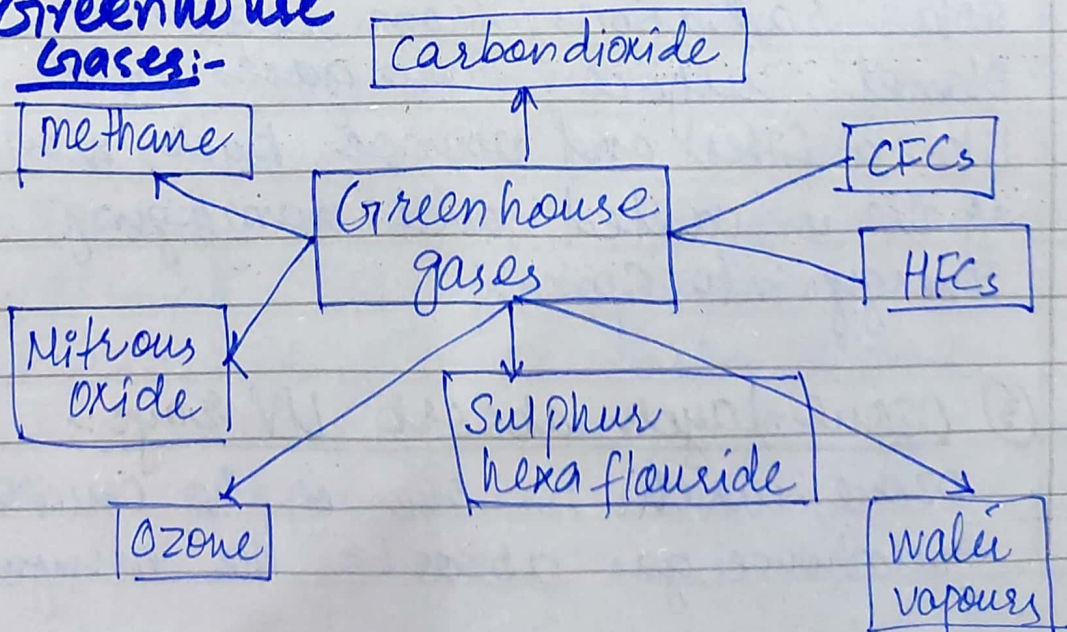 Greenhouse
Gases:-
Carbondioxide
Methane
CFCs
Greenhouse
gases
HFCs
Nitrous
oxide
Sulphur
hexa flouride
Ozone
water
vapours